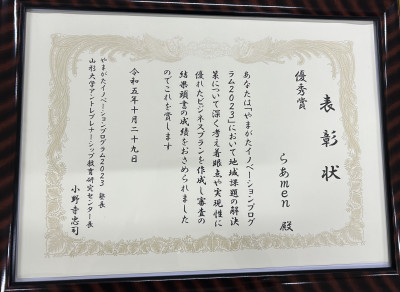 表彰状
優秀賞
らぁmen 殿
あなたは「やまがたイノベーションプログ
ラム2023」において地域課題の解決
策について深く考え着眼点や実現性に
優れたビジネスプランを作成し審査の
結果頭書の成績をおさめられました
のでこれを賞します
令和五年十月二十九日
やまがたイノベーションプログラム2023 塾長
山形大学アントレプレナーシップ教育研究センター長
小野寺忠司